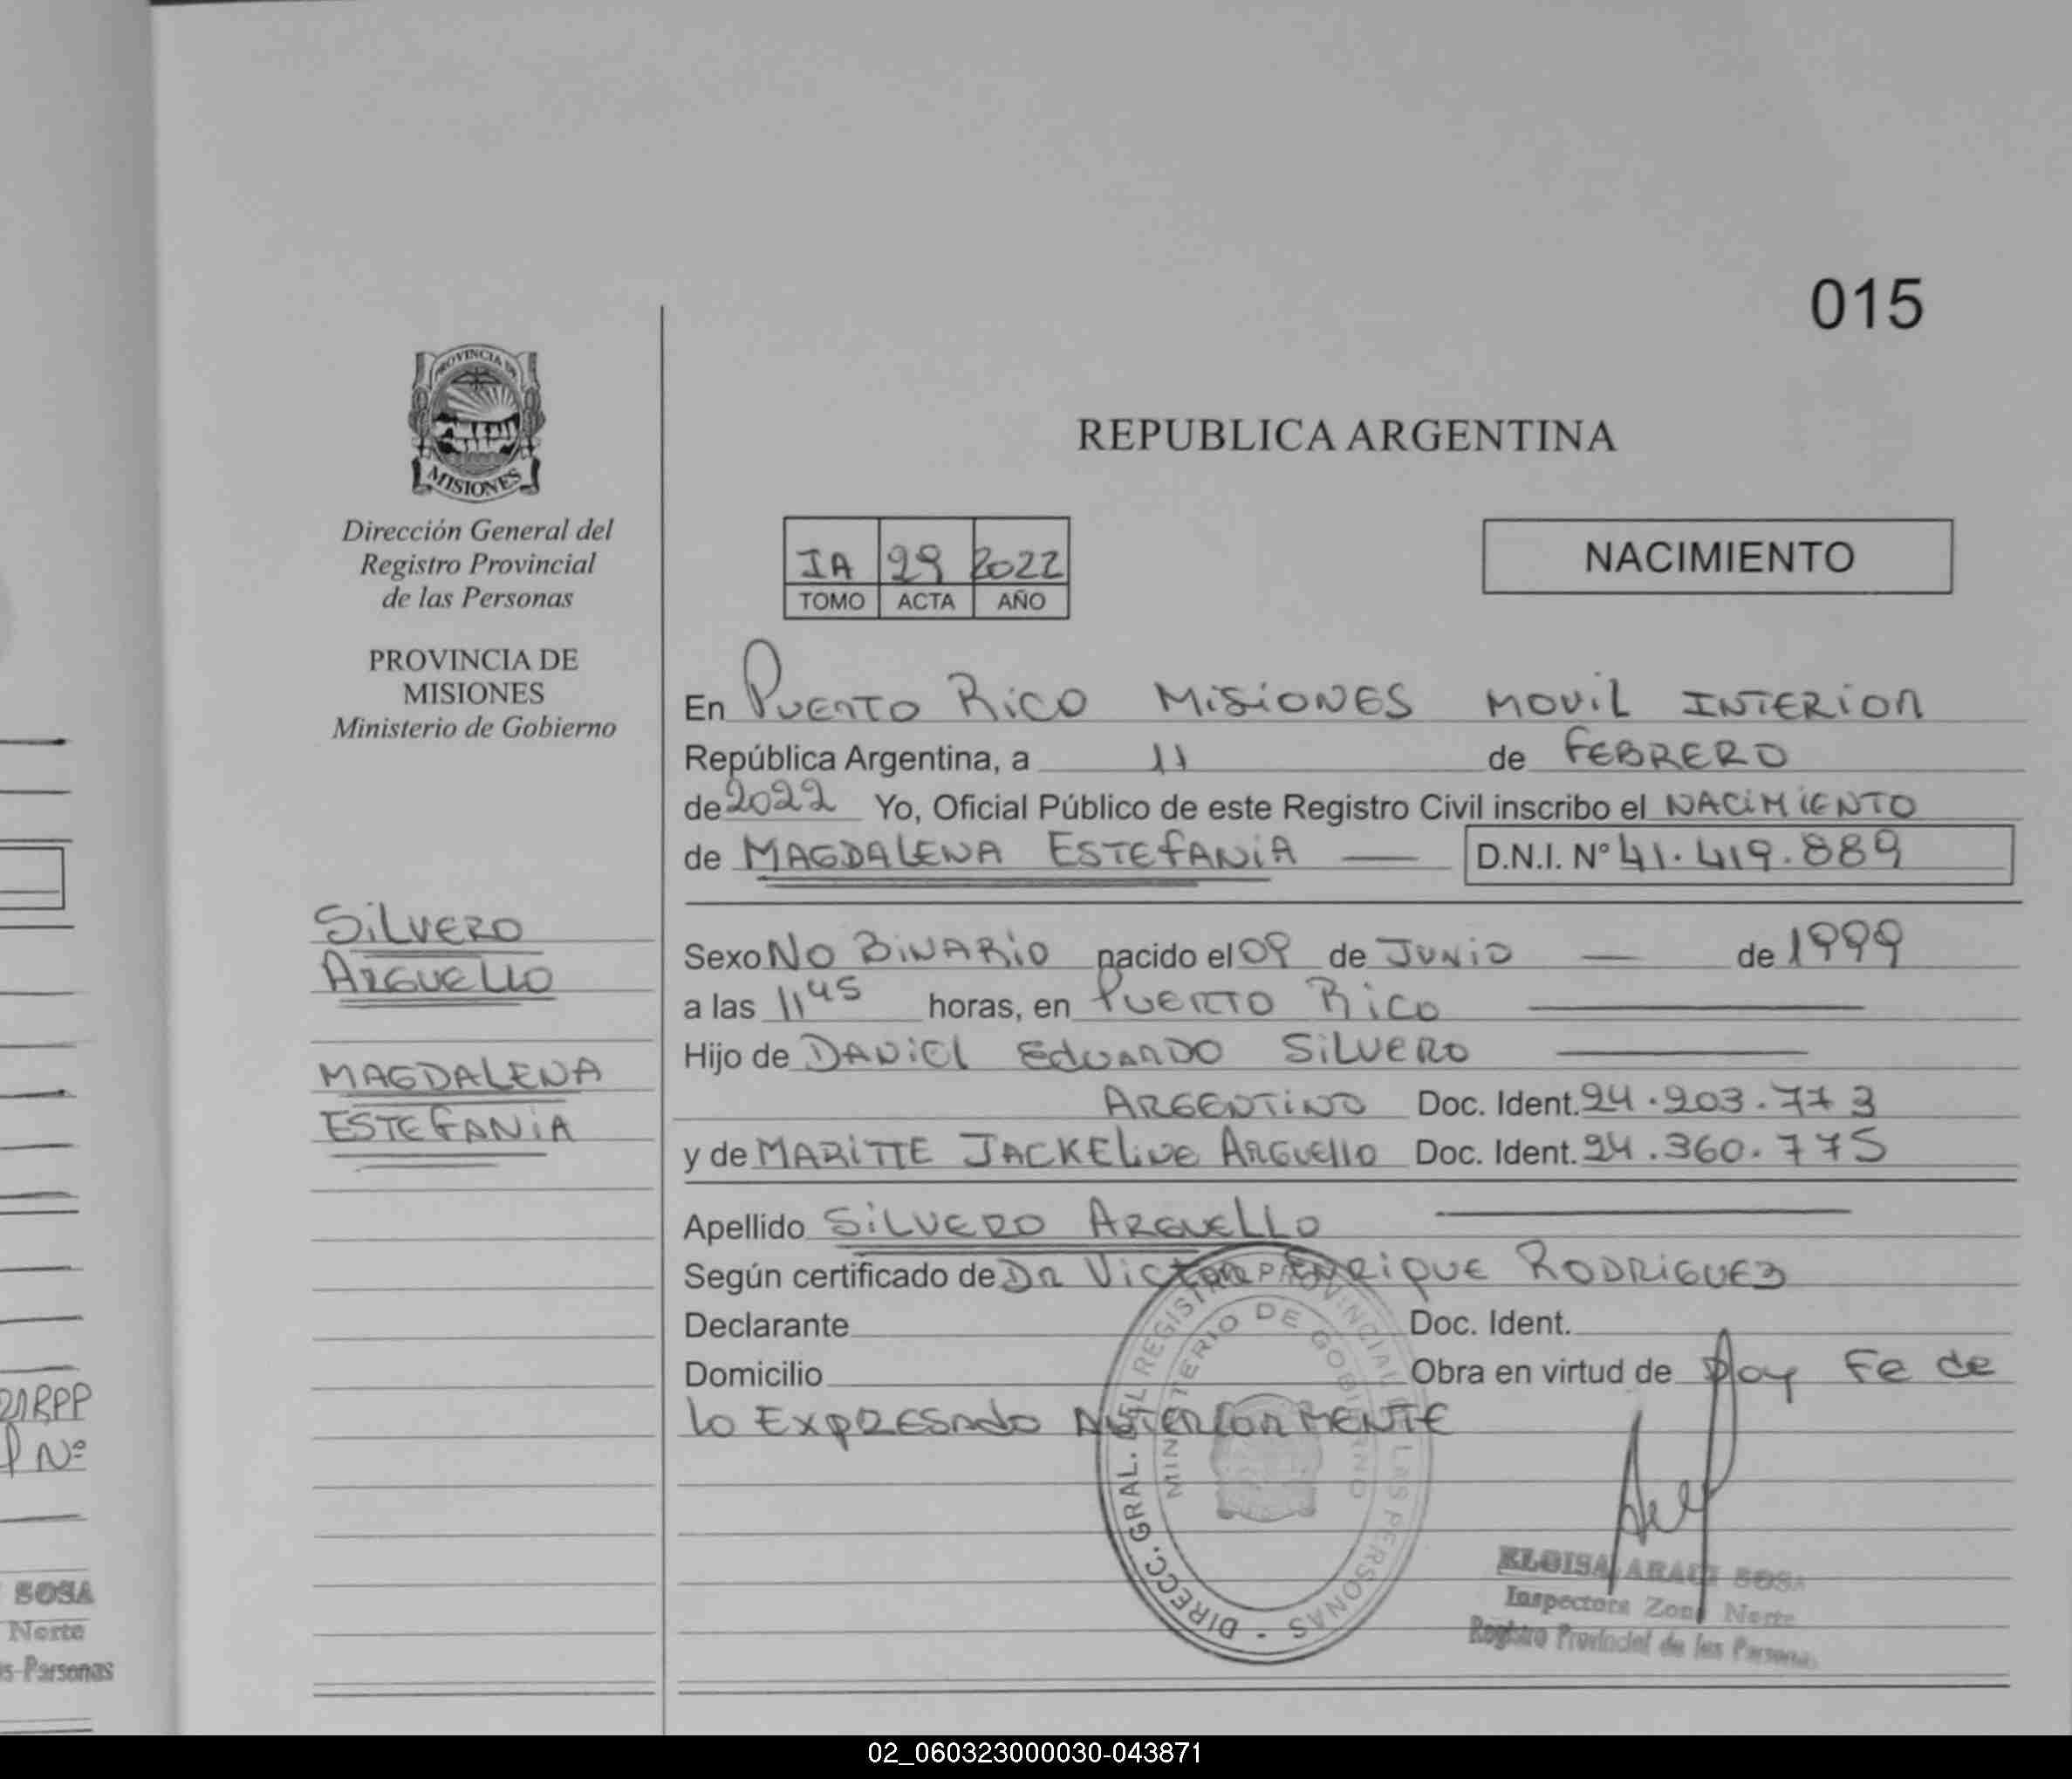 015
PROVINCIA DE
MISIONES
Dirección General del
Registro Provincial
de las Personas
PROVINCIA DE
MISIONES
Ministerio de Gobierno
REPUBLICA ARGENTINA
IA 29 2022
TOMO ACTA AÑO
NACIMIENTO
En PUERTO RICO MISIONES MOVIL INTERIOR
República Argentina, a 11 de FEBRERO
de 2022 Yo, Oficial Público de este Registro Civil inscribo el NACIMIENTO
de MAGDALENA ESTEFANIA — D.N.I. Nº 41.419.889
SILVERO
ARGUELLO
MAGDALENA
ESTEFANIA
Sexo NO BINARIO nacido el 09 de JUNIO — de 1999
a las 11 45 horas, en PUERTO RICO
Hijo de DANIEL EDUARDO SILVERO
ARGENTINO Doc. Ident. 24.203.773
y de MARITTE JACKELINE ARGUELLO Doc. Ident. 24.360.775
Apellido SILVERO ARGUELLO
Según certificado de DR VICTOR ENRIQUE RODRIGUEZ
Declarante Doc. Ident.
Domicilio Obra en virtud de Doy Fe de
lo EXPRESADO ANTERIORMENTE
DIRECC. GRAL. DEL REGISTRO PROVINCIAL DE LAS PERSONAS -
MINISTERIO DE GOBIERNO
ELOISA ARACI SOSA
Inspectora Zona Norte
Registro Provincial de las Personas
RPP
Nº
SOSA
Norte
s Personas
02_060323000030-043871